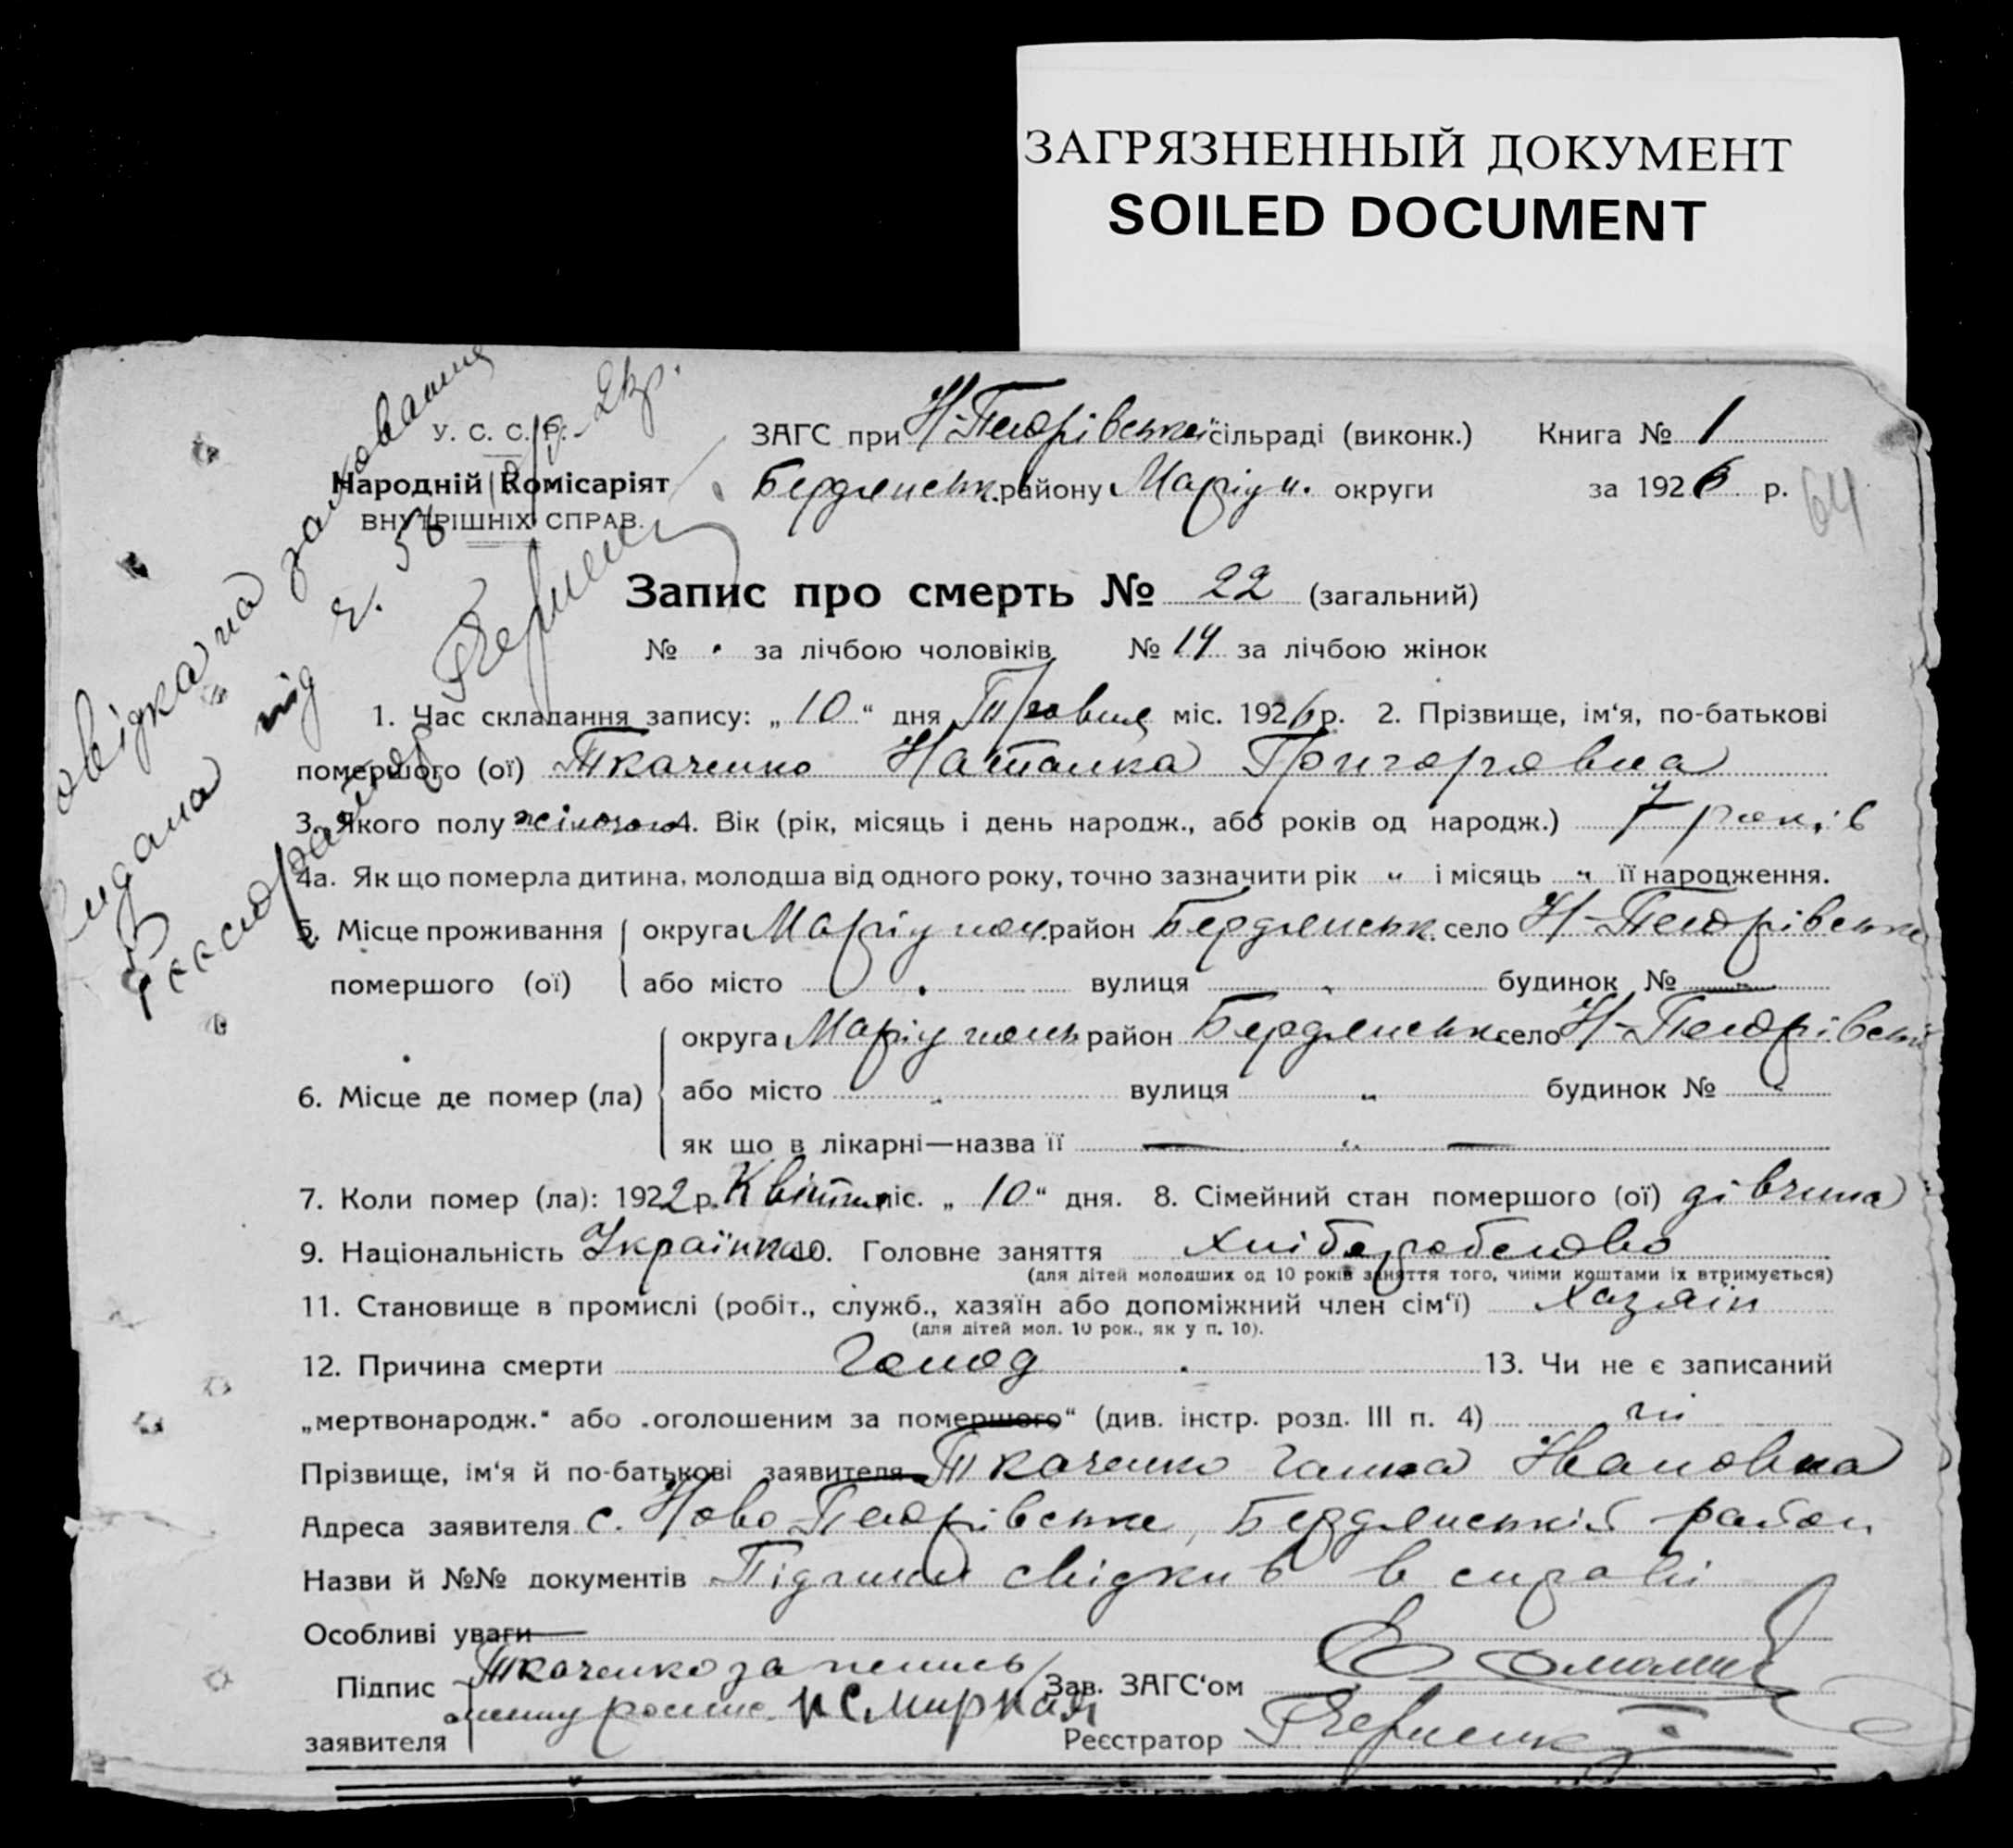 ЗАГРЯЗНЕННЫЙ ДОКУМЕНТ
SOILED DOCUMENT
У. С. С. Р.
Народній Комісаріят
ВНУТРІШНІХ СПРАВ.
ЗАГС при Н-Петрівської сільраді (виконк.) Книга № 1
Бердянськ. району Маріуп. округи за 1926 р.
64
Запис про смерть № 22 (загальний)
№ за лічбою чоловіків № 14 за лічбою жінок
1. Час складання запису: „10“ дня Травня міс. 1926 р. 2. Прізвище, ім‘я, по-батькові
помершого (ої) Ткаченко Наталка Григоровна
3. Якого полу жіночого 4. Вік (рік, місяць і день народж., або років од народж.) 7 років
4а. Як що померла дитина, молодша від одного року, точно зазначити рік „ і місяць „ її народження.
5. Місце проживання округа Маріупол. район Бердянськ. село Н-Петрівське
помершого (ої) або місто вулиця будинок №
округа Маріуполь район Бердянськ. село Н-Петрівськ
6. Місце де помер (ла) або місто „ вулиця „ будинок № „
як що в лікарні—назва її — „ —
7. Коли помер (ла): 1922 р. Квітня міс. „10“ дня. 8. Сімейний стан помершого (ої) дівчина
9. Національність Українка 10. Головне заняття хліборобство
(для дітей молодших од 10 років заняття того, чиїми коштами їх втримується)
11. Становище в промислі (робіт., служб., хазяїн або допоміжний член сім‘ї) Хазяїн
(для дітей мол. 10 рок., як у п. 10).
12. Причина смерти Голод 13. Чи не є записаний
„мертвонародж.“ або „оголошеним за помершого“ (див. інстр. розд. III п. 4) ні
Прізвище, ім‘я й по-батькові заявителя Ткаченко Ганна Ивановна
Адреса заявителя с. Ново-Петрівське, Бердянський район
Назви й №№ документів Підписи свідків в справі
Особливі уваги —
Підпис Ткаченко за Зав. ЗАГС‘ом
заявителя Реєстратор